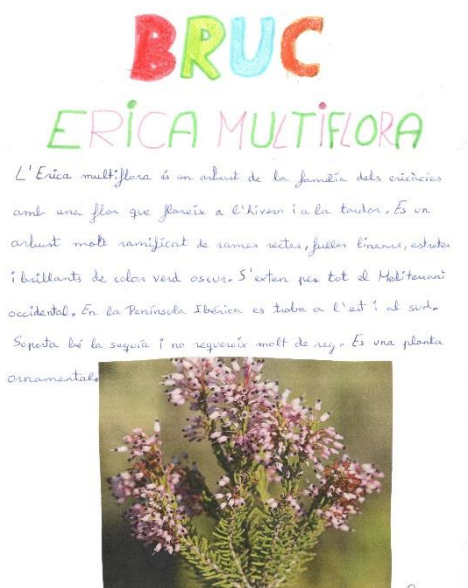 BRUC
ERICA MULTIFLORA
L'Erica multiflora és un arbust de la família dels ericàcies
amb una flor que floreix a l'hivern i a la tardor. És un
arbust molt ramificat de rames rectes, fulles linears, estretes
i brillants de color verd oscur. S'exten per tot el Mediterrani
occidental. En la Península Ibèrica es troba a l'est i al sud.
Soporta bé la sequía i no requereix molt de reg. És una planta
ornamental.